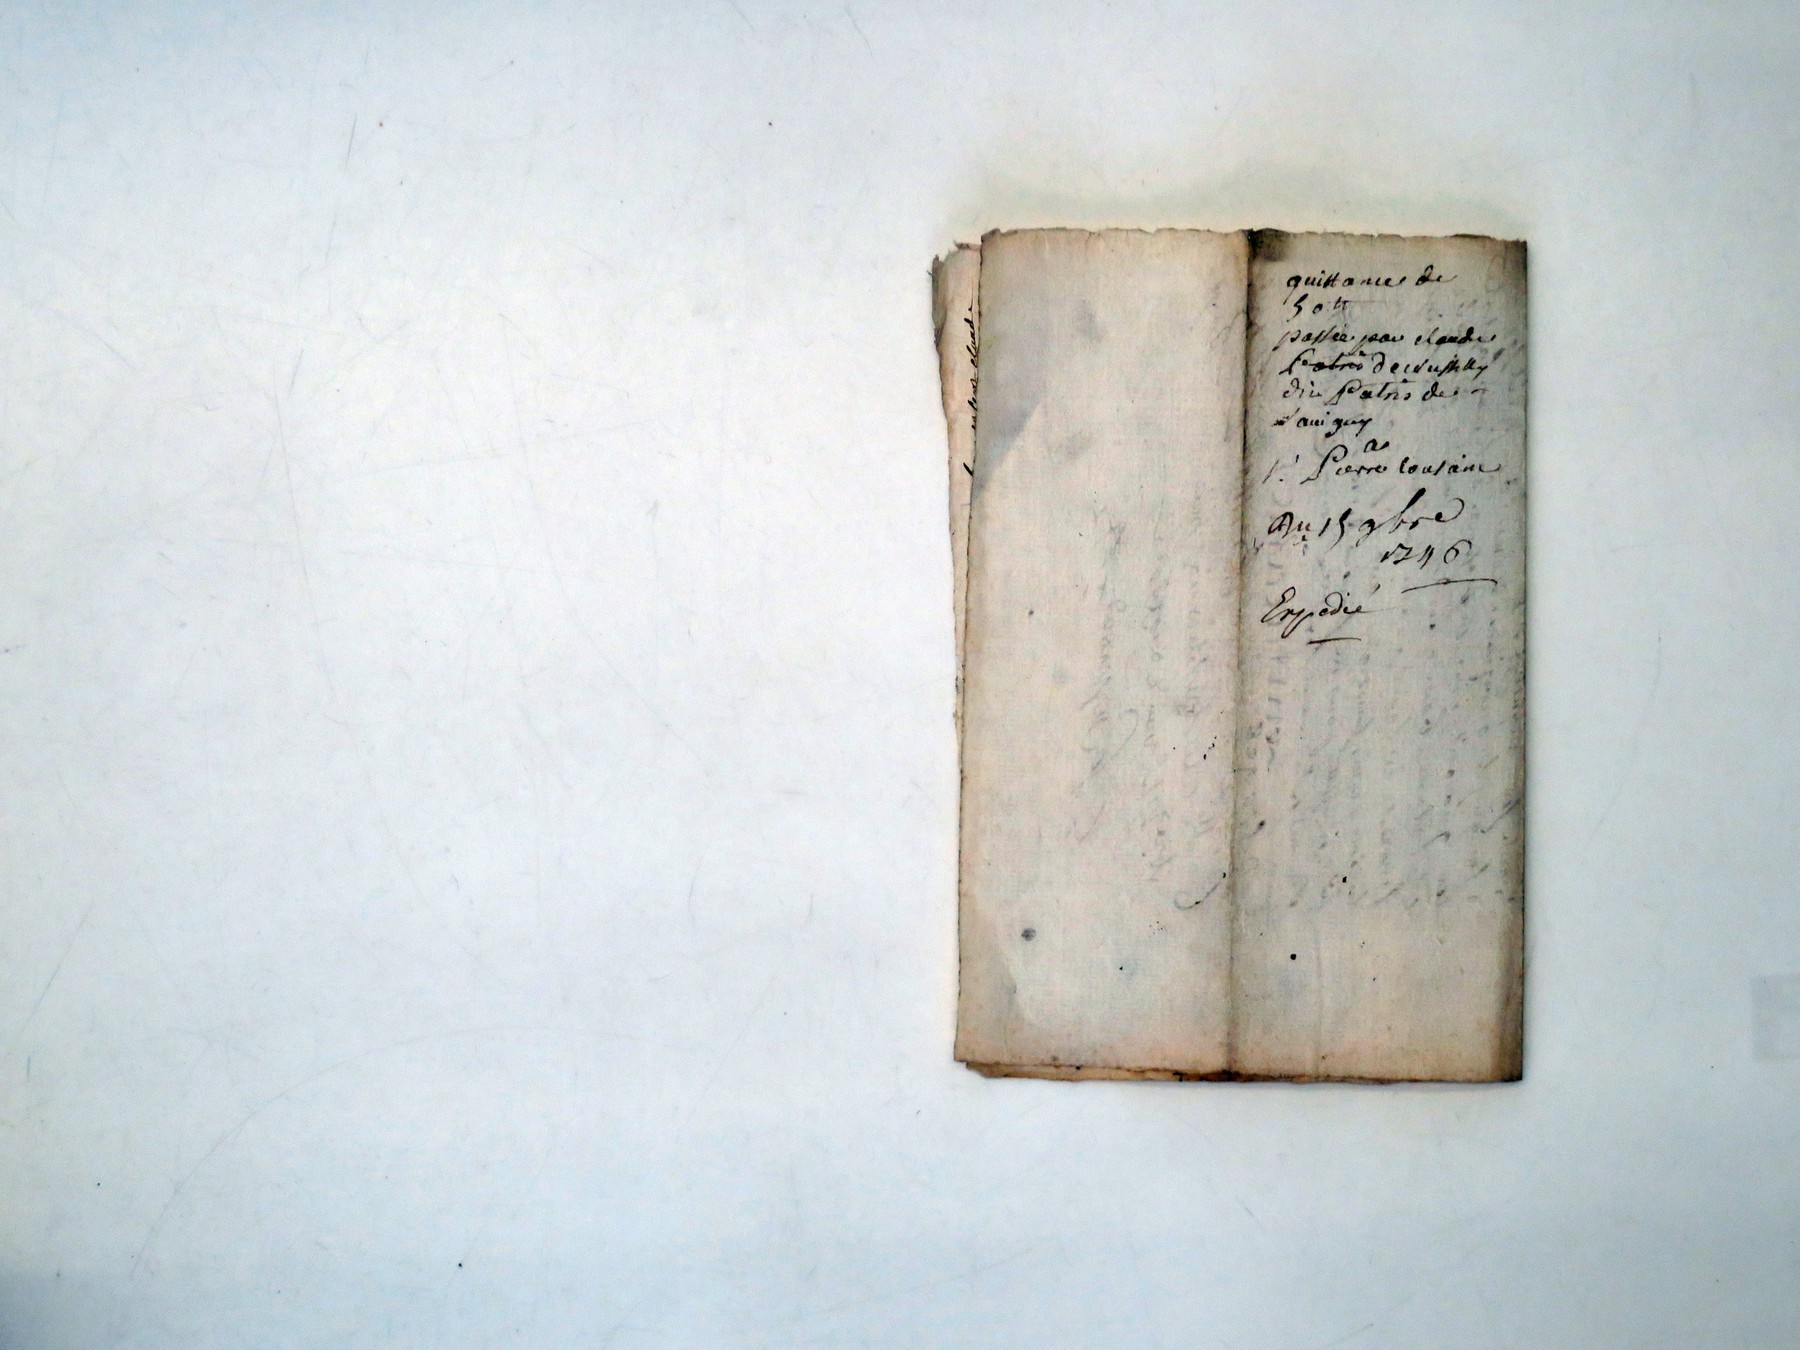 quittance de
50 tt
passée par claude
Patris de
dit Patris de
Sauigny
a
Sr. Pierre tousaint
Du 15 9bre
1746
Expedié